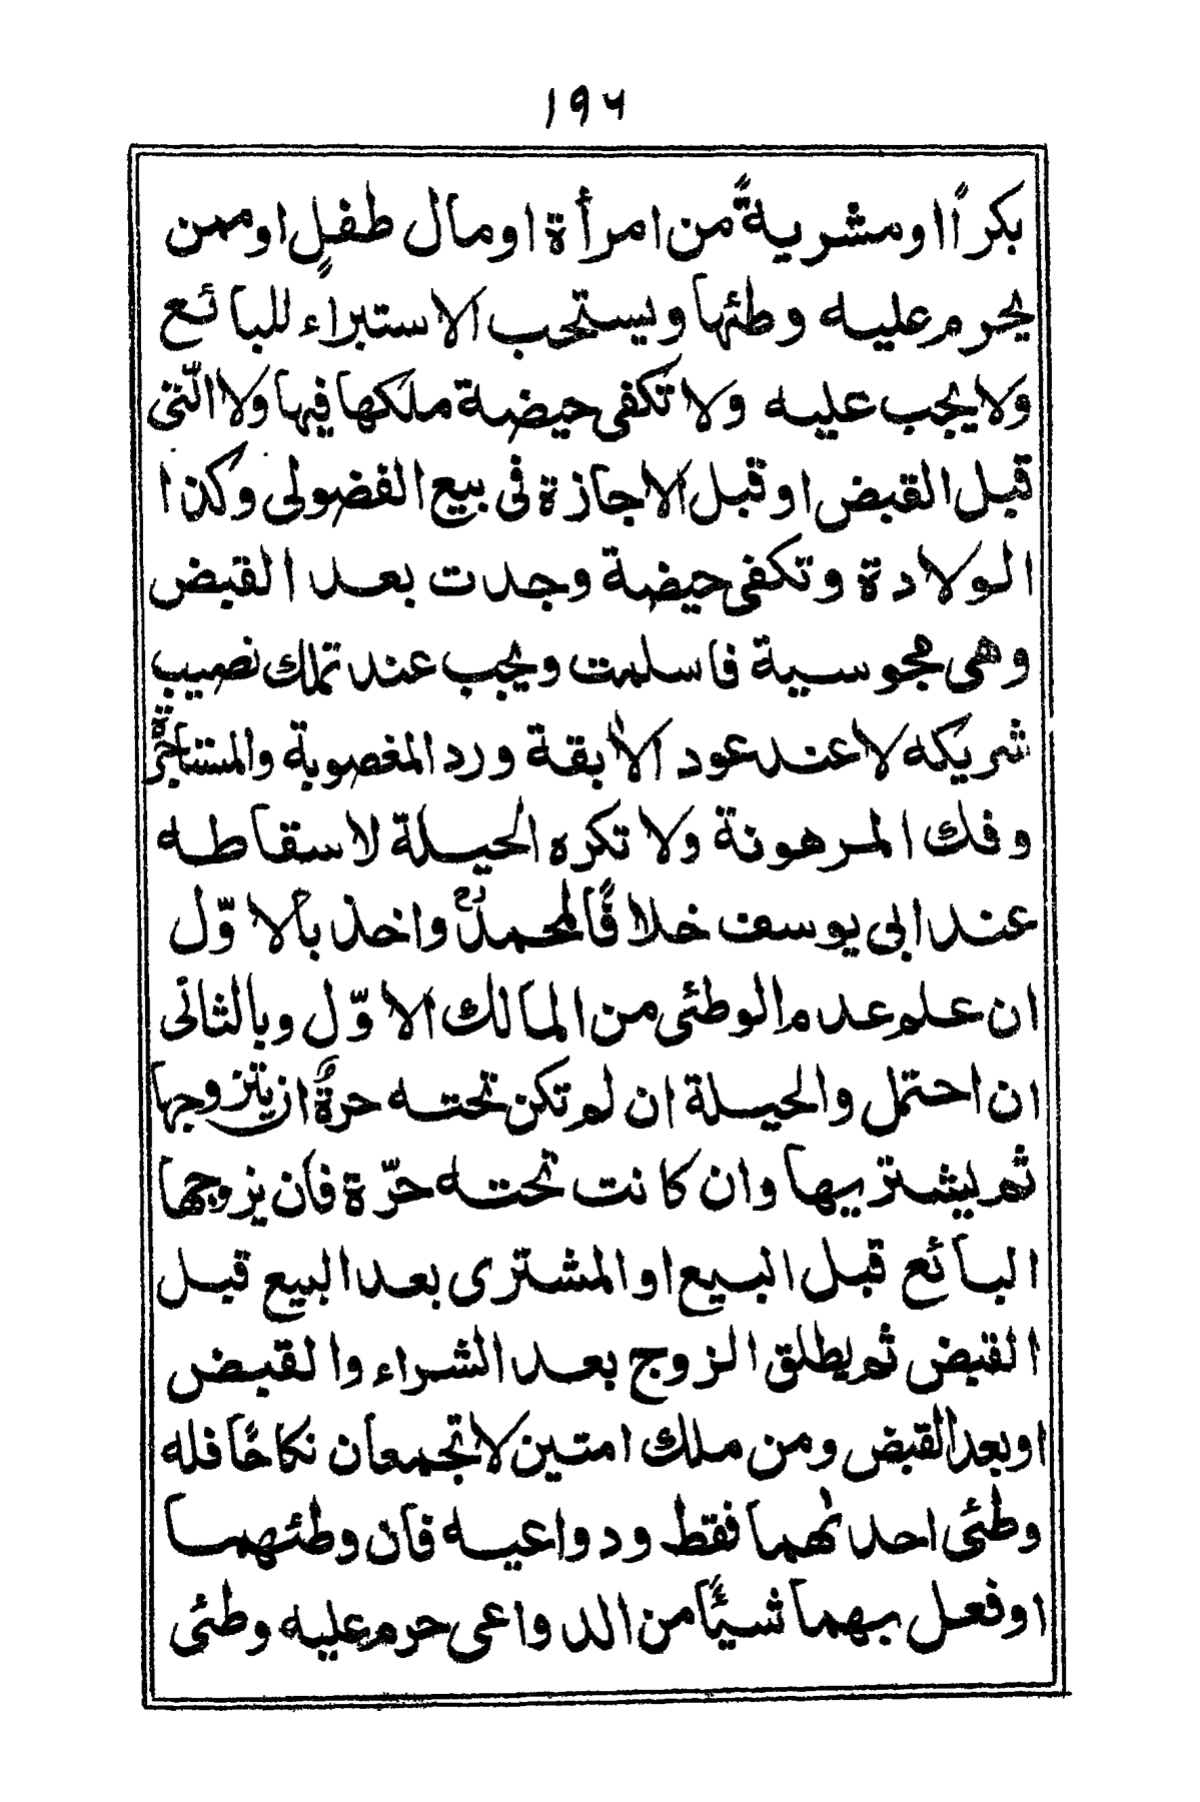 ١٩٦
بكرًا او مشريةً من امرأة او مال طفلٍ او ممن
يحرم عليه وطئها ويستحب الاستبراء للبائع
ولا يجب عليه ولا تكفى حيضة ملكها فيها ولا الّتى
قبل القبض او قبل الاجازة فى بيع الفضولى وكذا
الولادة وتكفى حيضة وجدت بعد القبض
وهى مجوسية فاسلمت ويجب عند تملك نصيب
شريكه لا عند عود الأبقة ورد المغصوبة والمستاجرة
وفك المرهونة ولا تكره الحيلة لاسقاطه
عند ابى يوسف خلافًا لمحمدؒ واخذ بالاوّل
ان علم عدم الوطئى من المالك الاوّل وبالثانى
ان احتمل والحيلة ان لم تكن تحته حرةٌ ان يتزوجها
ثم يشتريها وان كانت تحته حرّة فان يزوجها
البائع قبل البيع او المشترى بعد البيع قبل
القبض ثم يطلق الزوج بعد الشراء والقبض
او بعد القبض ومن ملك امتين لا تجمعان نكاحًا فله
وطئى احدٰهما فقط ودواعيه فان وطئهما
او فعل بهما شيئًا من الدواعى حرم عليه وطئى